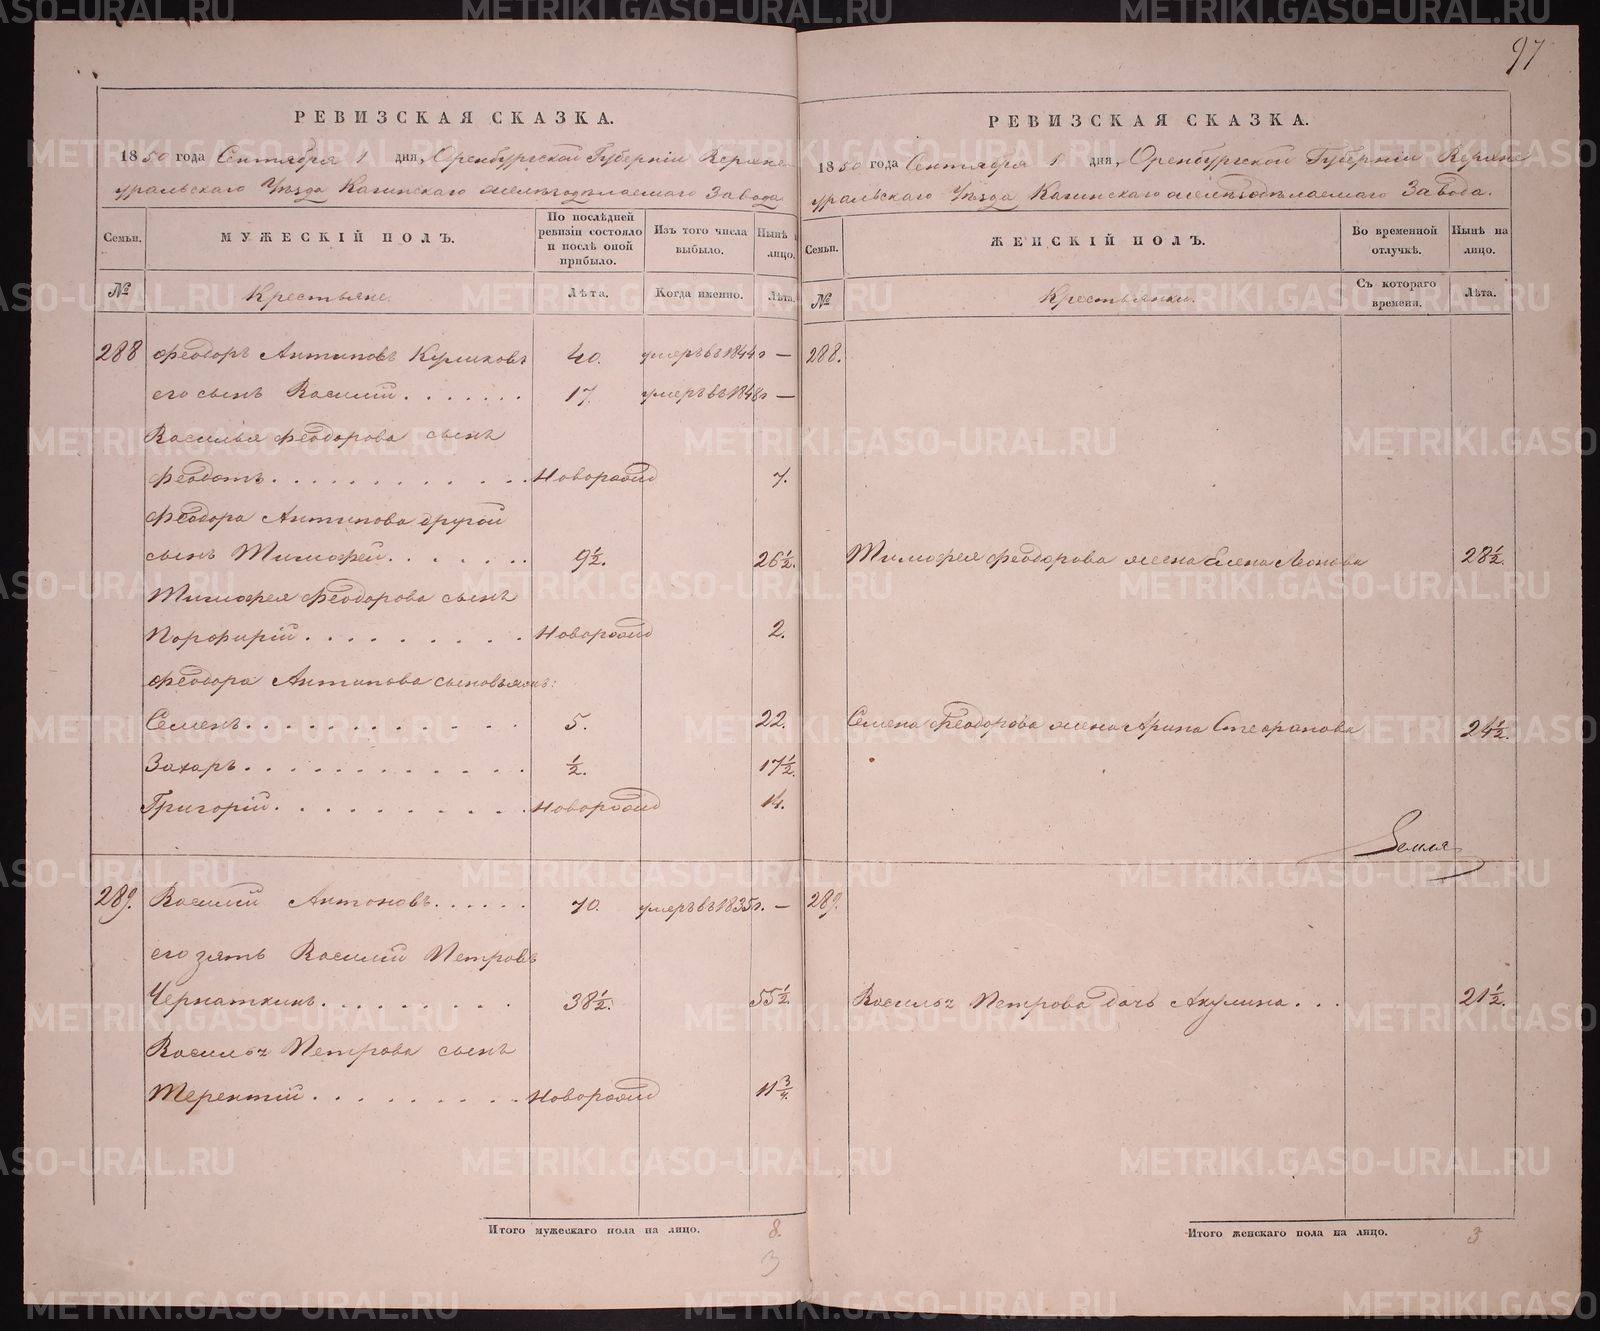 97
РЕВИЗСКАЯ СКАЗКА.
1850 года Сентября 1 дня, Оренбургской Губерніи Верхне-
уральскаго Уѣзда Кагинскаго железодѣлаемаго Завода
Семьи. МУЖЕСКІЙ ПОЛЪ. По послѣдней ревизіи состояло и послѣ оной прибыло. Изъ того числа выбыло. Нынѣ на лицо.
№ Крестьяне. Лѣта. Когда именно. Лѣта.
288 Феодоръ Антиповъ Куликовъ 40. умеръ въ 1844 г —
его сынъ Василій 17. умеръ въ 1848 г —
Василья Феодорова сынъ
Феодотъ Новорожд 7.
Феодора Антипова другой
сынъ Тимофей 9½. 26½.
Тимофея Феодорова сынъ
Порфирій Новорожд 2.
Феодора Антипова сыновья:
Семенъ 5. 22.
Захаръ ½. 17½.
Григорій Новорожд 14.
289. Василий Антоновъ 70. умеръ въ 1835 г. —
его зять Василій Петровъ
Чернаткинъ 38½. 55½.
Василья Петрова сынъ
Терентій Новорожд 11¾.
Итого мужескаго пола на лицо. 8.
3
РЕВИЗСКАЯ СКАЗКА.
1850 года Сентября 1 дня, Оренбургской Губерніи Верхне
уральскаго Уѣзда Кагинскаго железодѣлаемаго Завода.
Семьи. ЖЕНСКІЙ ПОЛЪ. Во временной отлучкѣ. Нынѣ на лицо.
№ Крестьянки. Съ котораго времени. Лѣта.
288.
Тимофея Феодорова жена Елена Леонова 28½.
Семена Феодорова жена Арина Стефанова 24½.
289.
Василья Петрова дочь Акулина 21½.
Итого женскаго пола на лицо. 3
METRIKI.GASO-URAL.RU